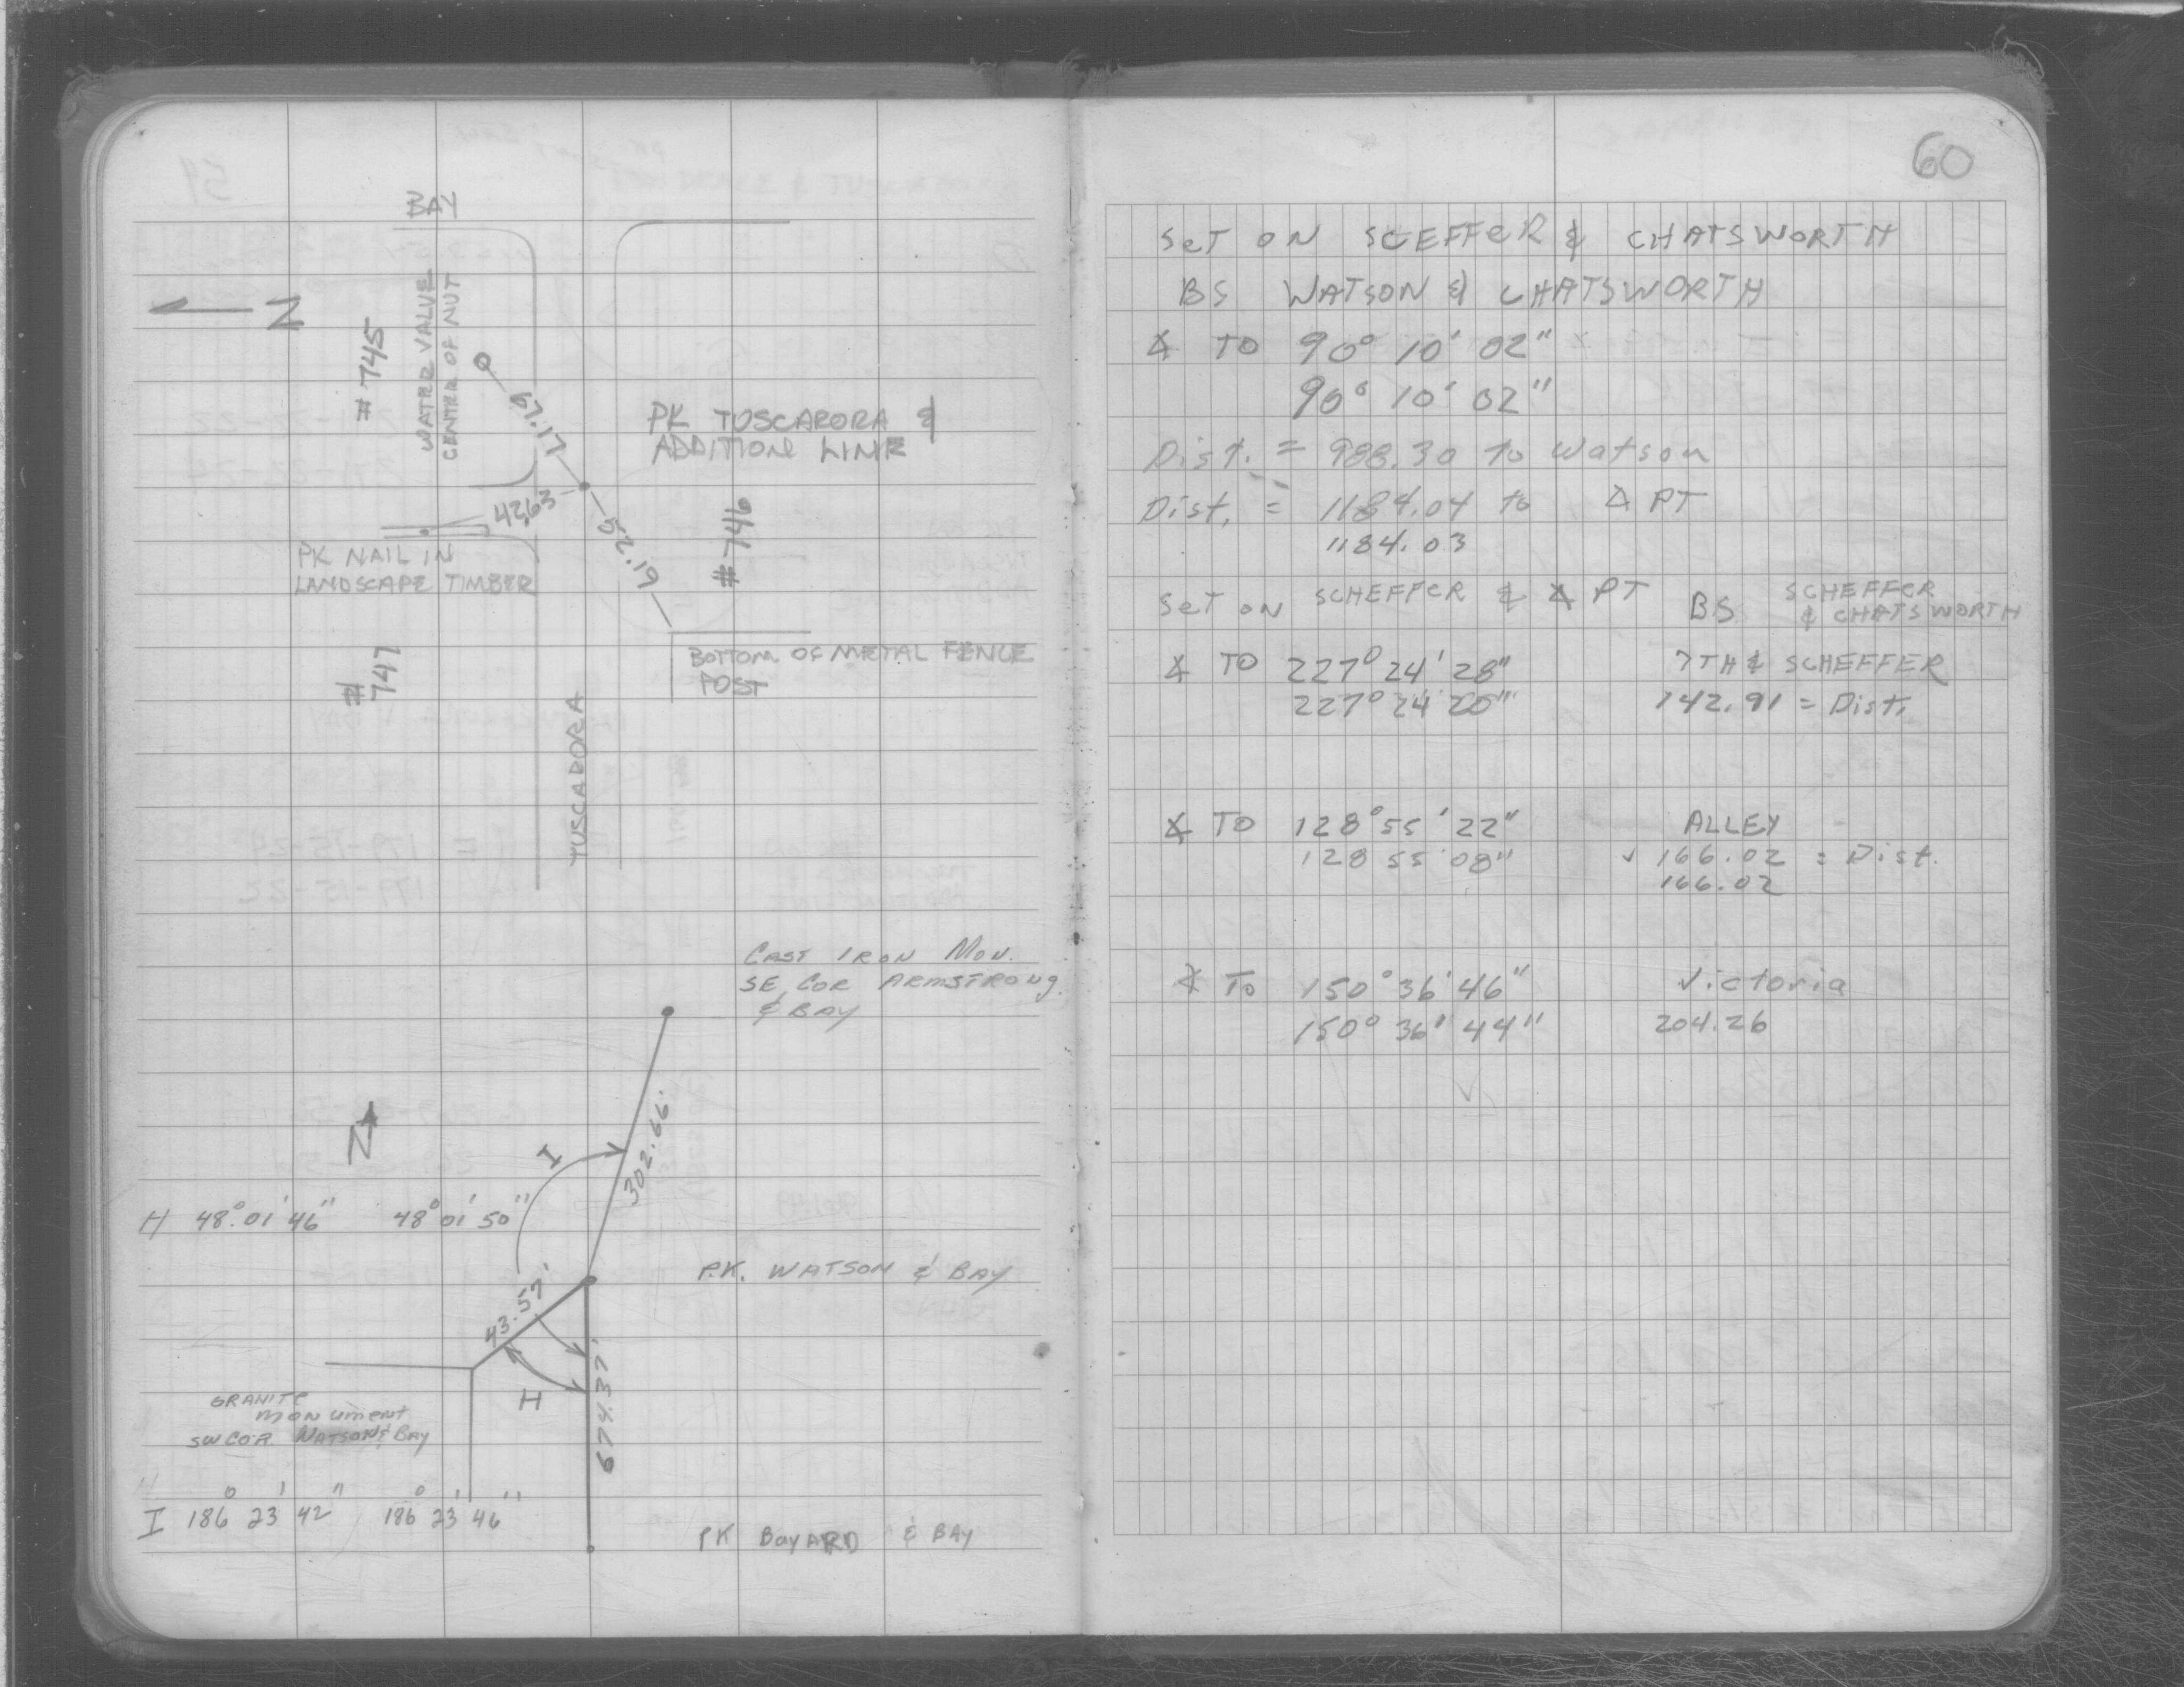 BAY
N
# 745
WATER VALUE
CENTER OF NUT
67.17
PK TUSCARORA &
ADDITION LINE
42.63
52.19
# 746
PK NAIL IN
LANDSCAPE TIMBER
# 747
BOTTOM OF METAL FENCE
POST
TUSCADORA
CAST IRON MON.
SE COR ARMSTRONG
& BAY
N
I
302.66'
H 48° 01' 46" 48° 01' 50"
P.K. WATSON & BAY
43.57'
H
674.37'
GRANITE
monument
SW COR. WATSON & BAY
I 186° 23' 42" 186° 23' 46"
PK BayARD & BAY
60
SeT ON SCEFFeR & CHATSWORTH
BS WATSON & CHATSWORTH
∡ TO 90° 10' 02"
90° 10' 02"
Dist. = 988.30 to Watson
Dist. = 1184.04 to ∡ PT
1184.03
SeT ON SCHEFFER & ∡ PT BS SCHEFFER
& CHATSWORTH
∡ TO 227° 24' 28" 7TH & SCHEFFER
227° 24' 20" 142.91 = Dist.
∡ TO 128° 55' 22" ALLEY
128 55' 08" ✓ 166.02 = Dist.
166.02
∡ To 150° 36' 46" Victoria
150° 36' 44" 204.26